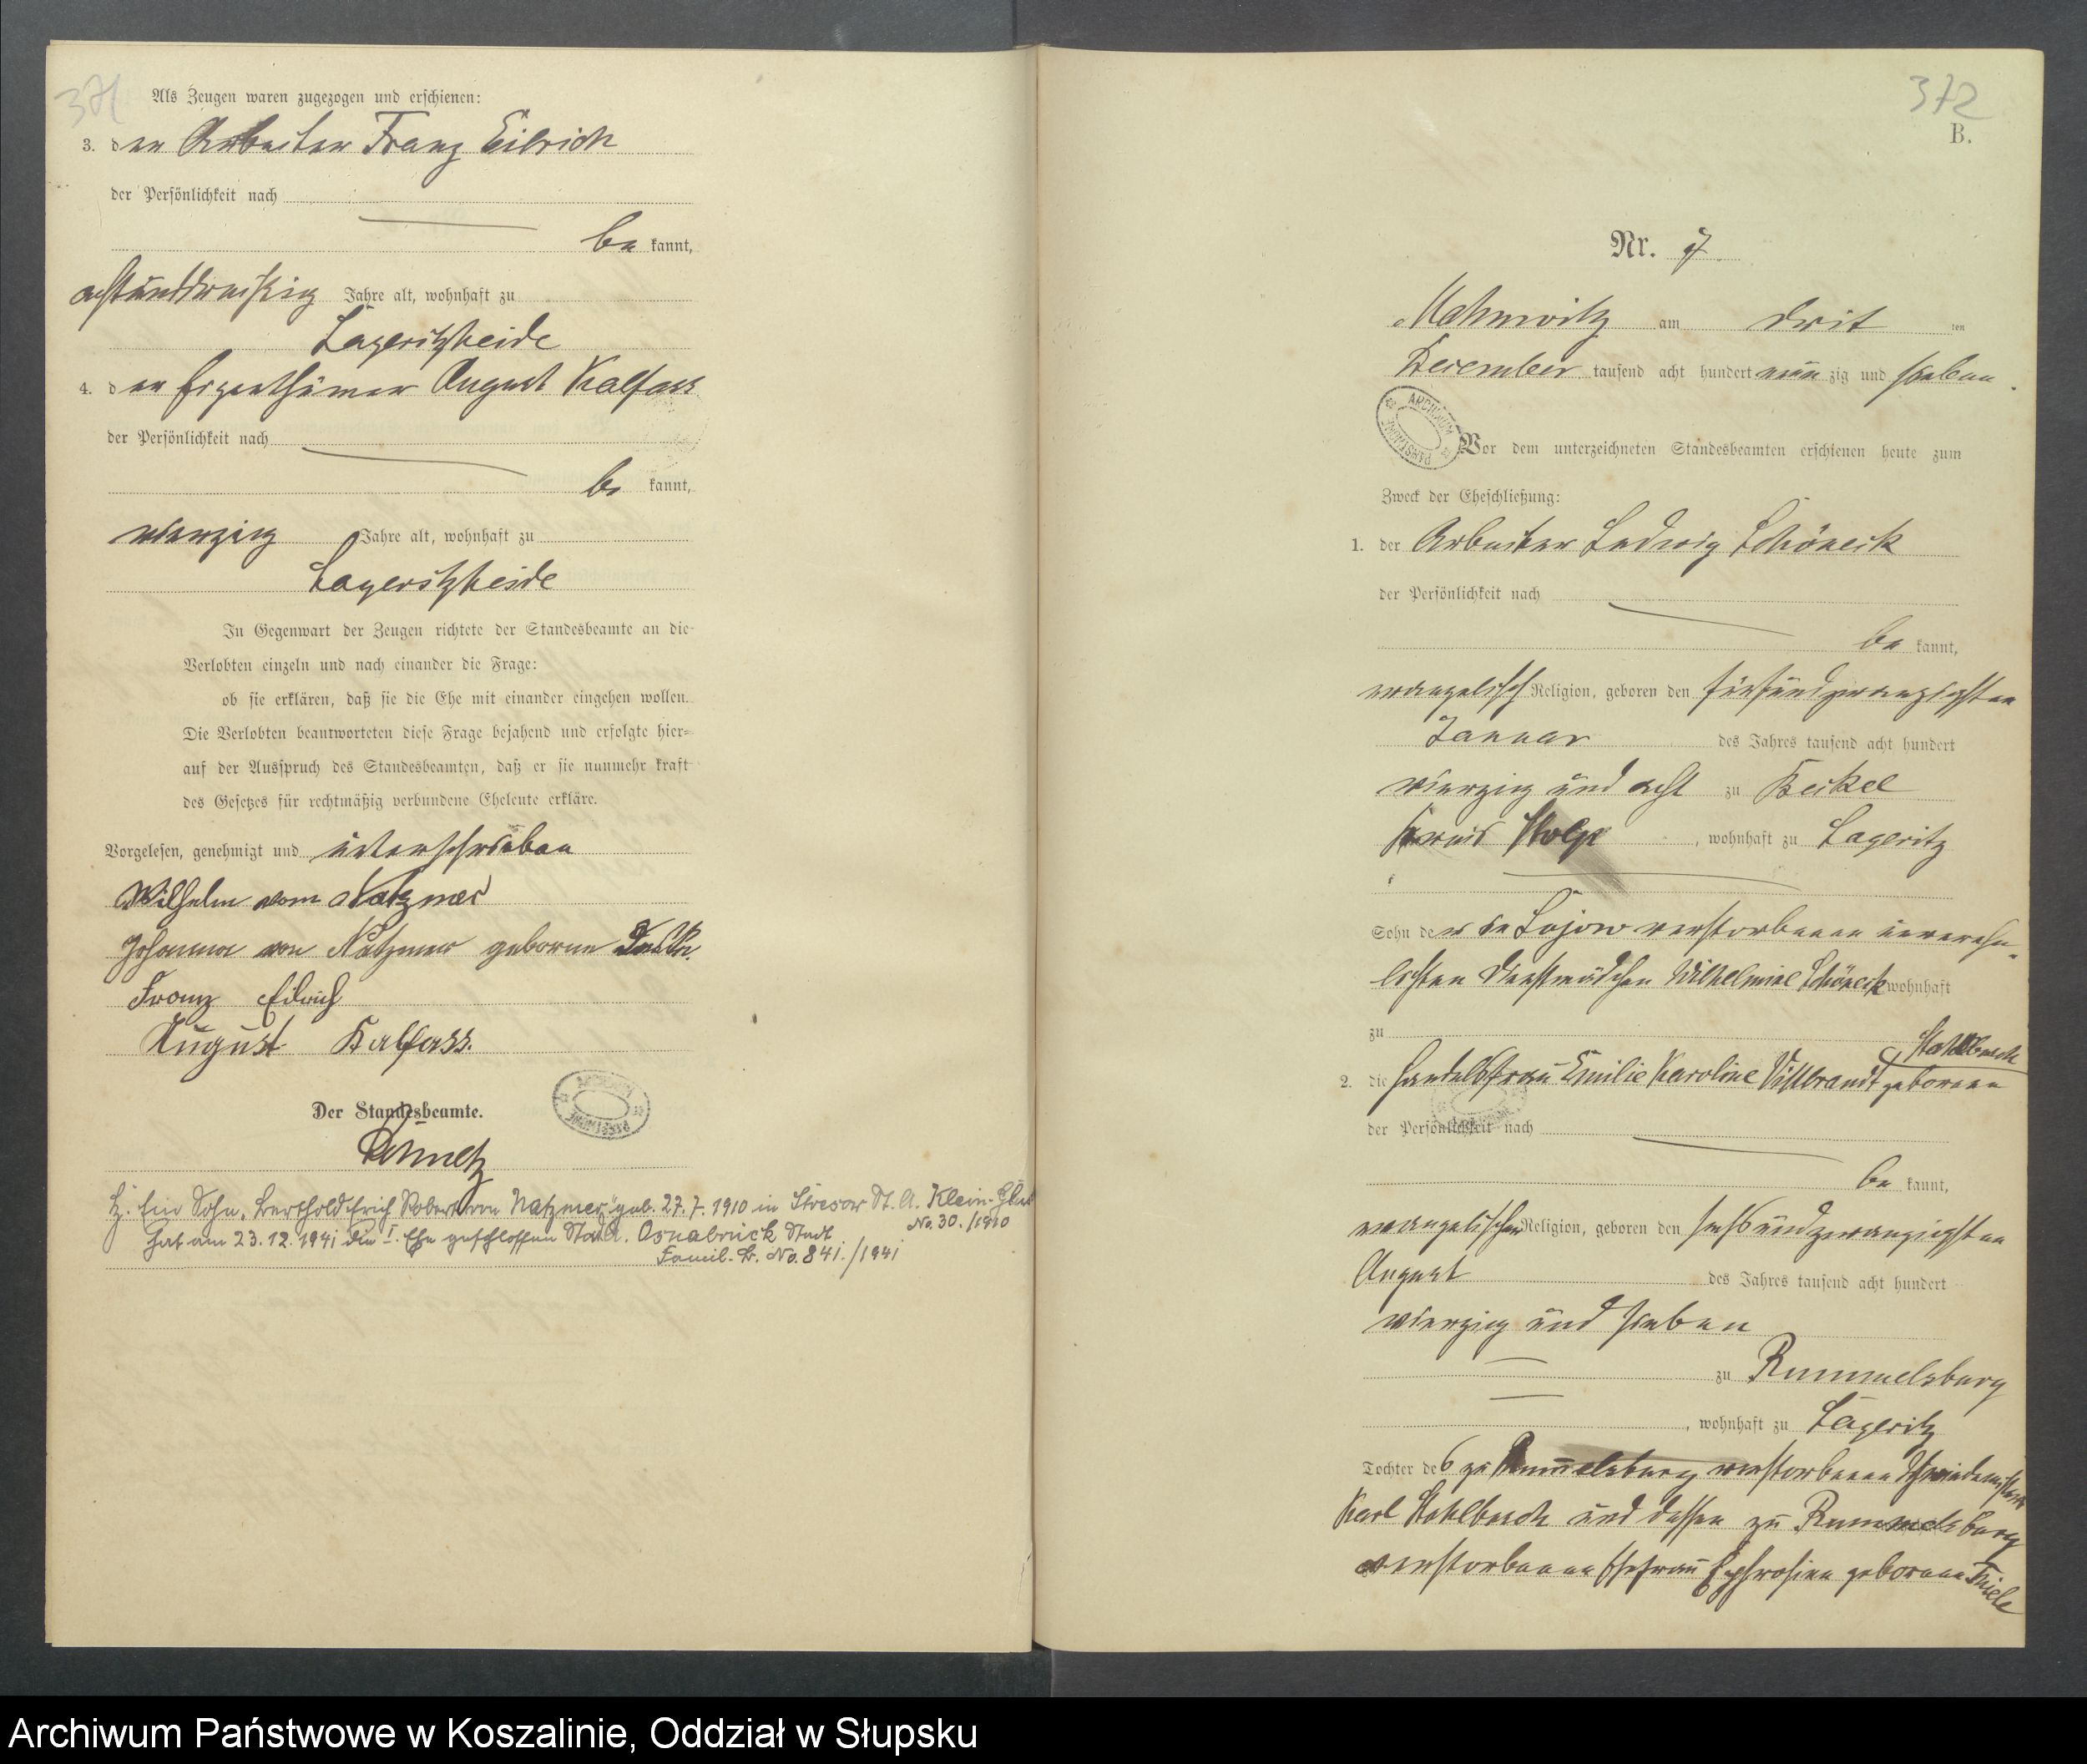 371
Als Zeugen waren zugezogen und erschienen:
3. den Arbeiter Franz Eilrich
der Persönlichkeit nach
be kannt,
achtunddreißig Jahre alt, wohnhaft zu
Lageritzheide
4. den Eigenthümer August Kalfass
der Persönlichkeit nach
be kannt,
vierzig Jahre alt, wohnhaft zu
Lageritzheide
In Gegenwart der Zeugen richtete der Standesbeamte an die
Verlobten einzeln und nach einander die Frage:
ob sie erklären, daß sie die Ehe mit einander eingehen wollen.
Die Verlobten beantworteten diese Frage bejahend und erfolgte hier-
auf der Ausspruch des Standesbeamten, daß er sie nunmehr kraft
des Gesetzes für rechtmäßig verbundene Eheleute erkläre.
Vorgelesen, genehmigt und unterschrieben
Wilhelm von Natzmer
Johanna von Natzmer geborene
Franz Eilrich
August Kalfass.
Der Standesbeamte.
Ein Sohn, Berthold Erich Robert von Natzmer, geb. 27.7.1910 in Stresow St. A. Klein-
No. 30./1910
hat am 23.12.1941 die I. Ehe geschlossen St. A. Osnabrück Stadt
Famil. B. No. 841./1941
372
B.
Nr. 7
am drit ten
December tausend acht hundert neun zig und sieben.
Vor dem unterzeichneten Standesbeamten erschienen heute zum
Zweck der Eheschließung:
1. der Arbeiter Ludwig Schöneck
der Persönlichkeit nach
be kannt,
evangelisch Religion, geboren den fünfundzwanzigsten
Januar des Jahres tausend acht hundert
vierzig und acht zu Beckel
Kreis Stolp, wohnhaft zu Lageritz
Sohn der in Lojow verstorbenen unverehe-
lichten Dienstmädchen Wilhelmine Schöneck wohnhaft
zu
Stahlbusch
2. die Handelsfrau Emilie Karoline geborene
der Persönlichkeit nach
be kannt,
evangelischen Religion, geboren den sechsundzwanzigsten
August des Jahres tausend acht hundert
vierzig und sieben
zu Rummelsburg
, wohnhaft zu Lageritz
Tochter des zu Rummelsburg verstorbenen
Karl Stahlbusch und dessen zu Rummelsburg
verstorbenen Ehefrau geborene Thiele
Archiwum Państwowe w Koszalinie, Oddział w Słupsku